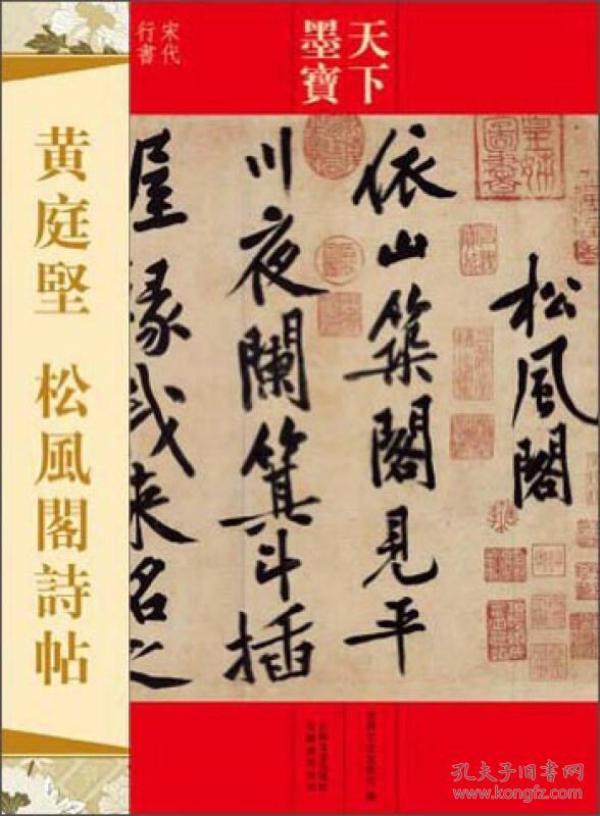 天下
墨寶
宋代
行書
黄庭堅 松風閣詩帖
松風閣
依山築閣見平
川夜闌箕斗插
屋椽我来名之
皇姊
圖書
孔夫子旧书网
www.kongfz.com